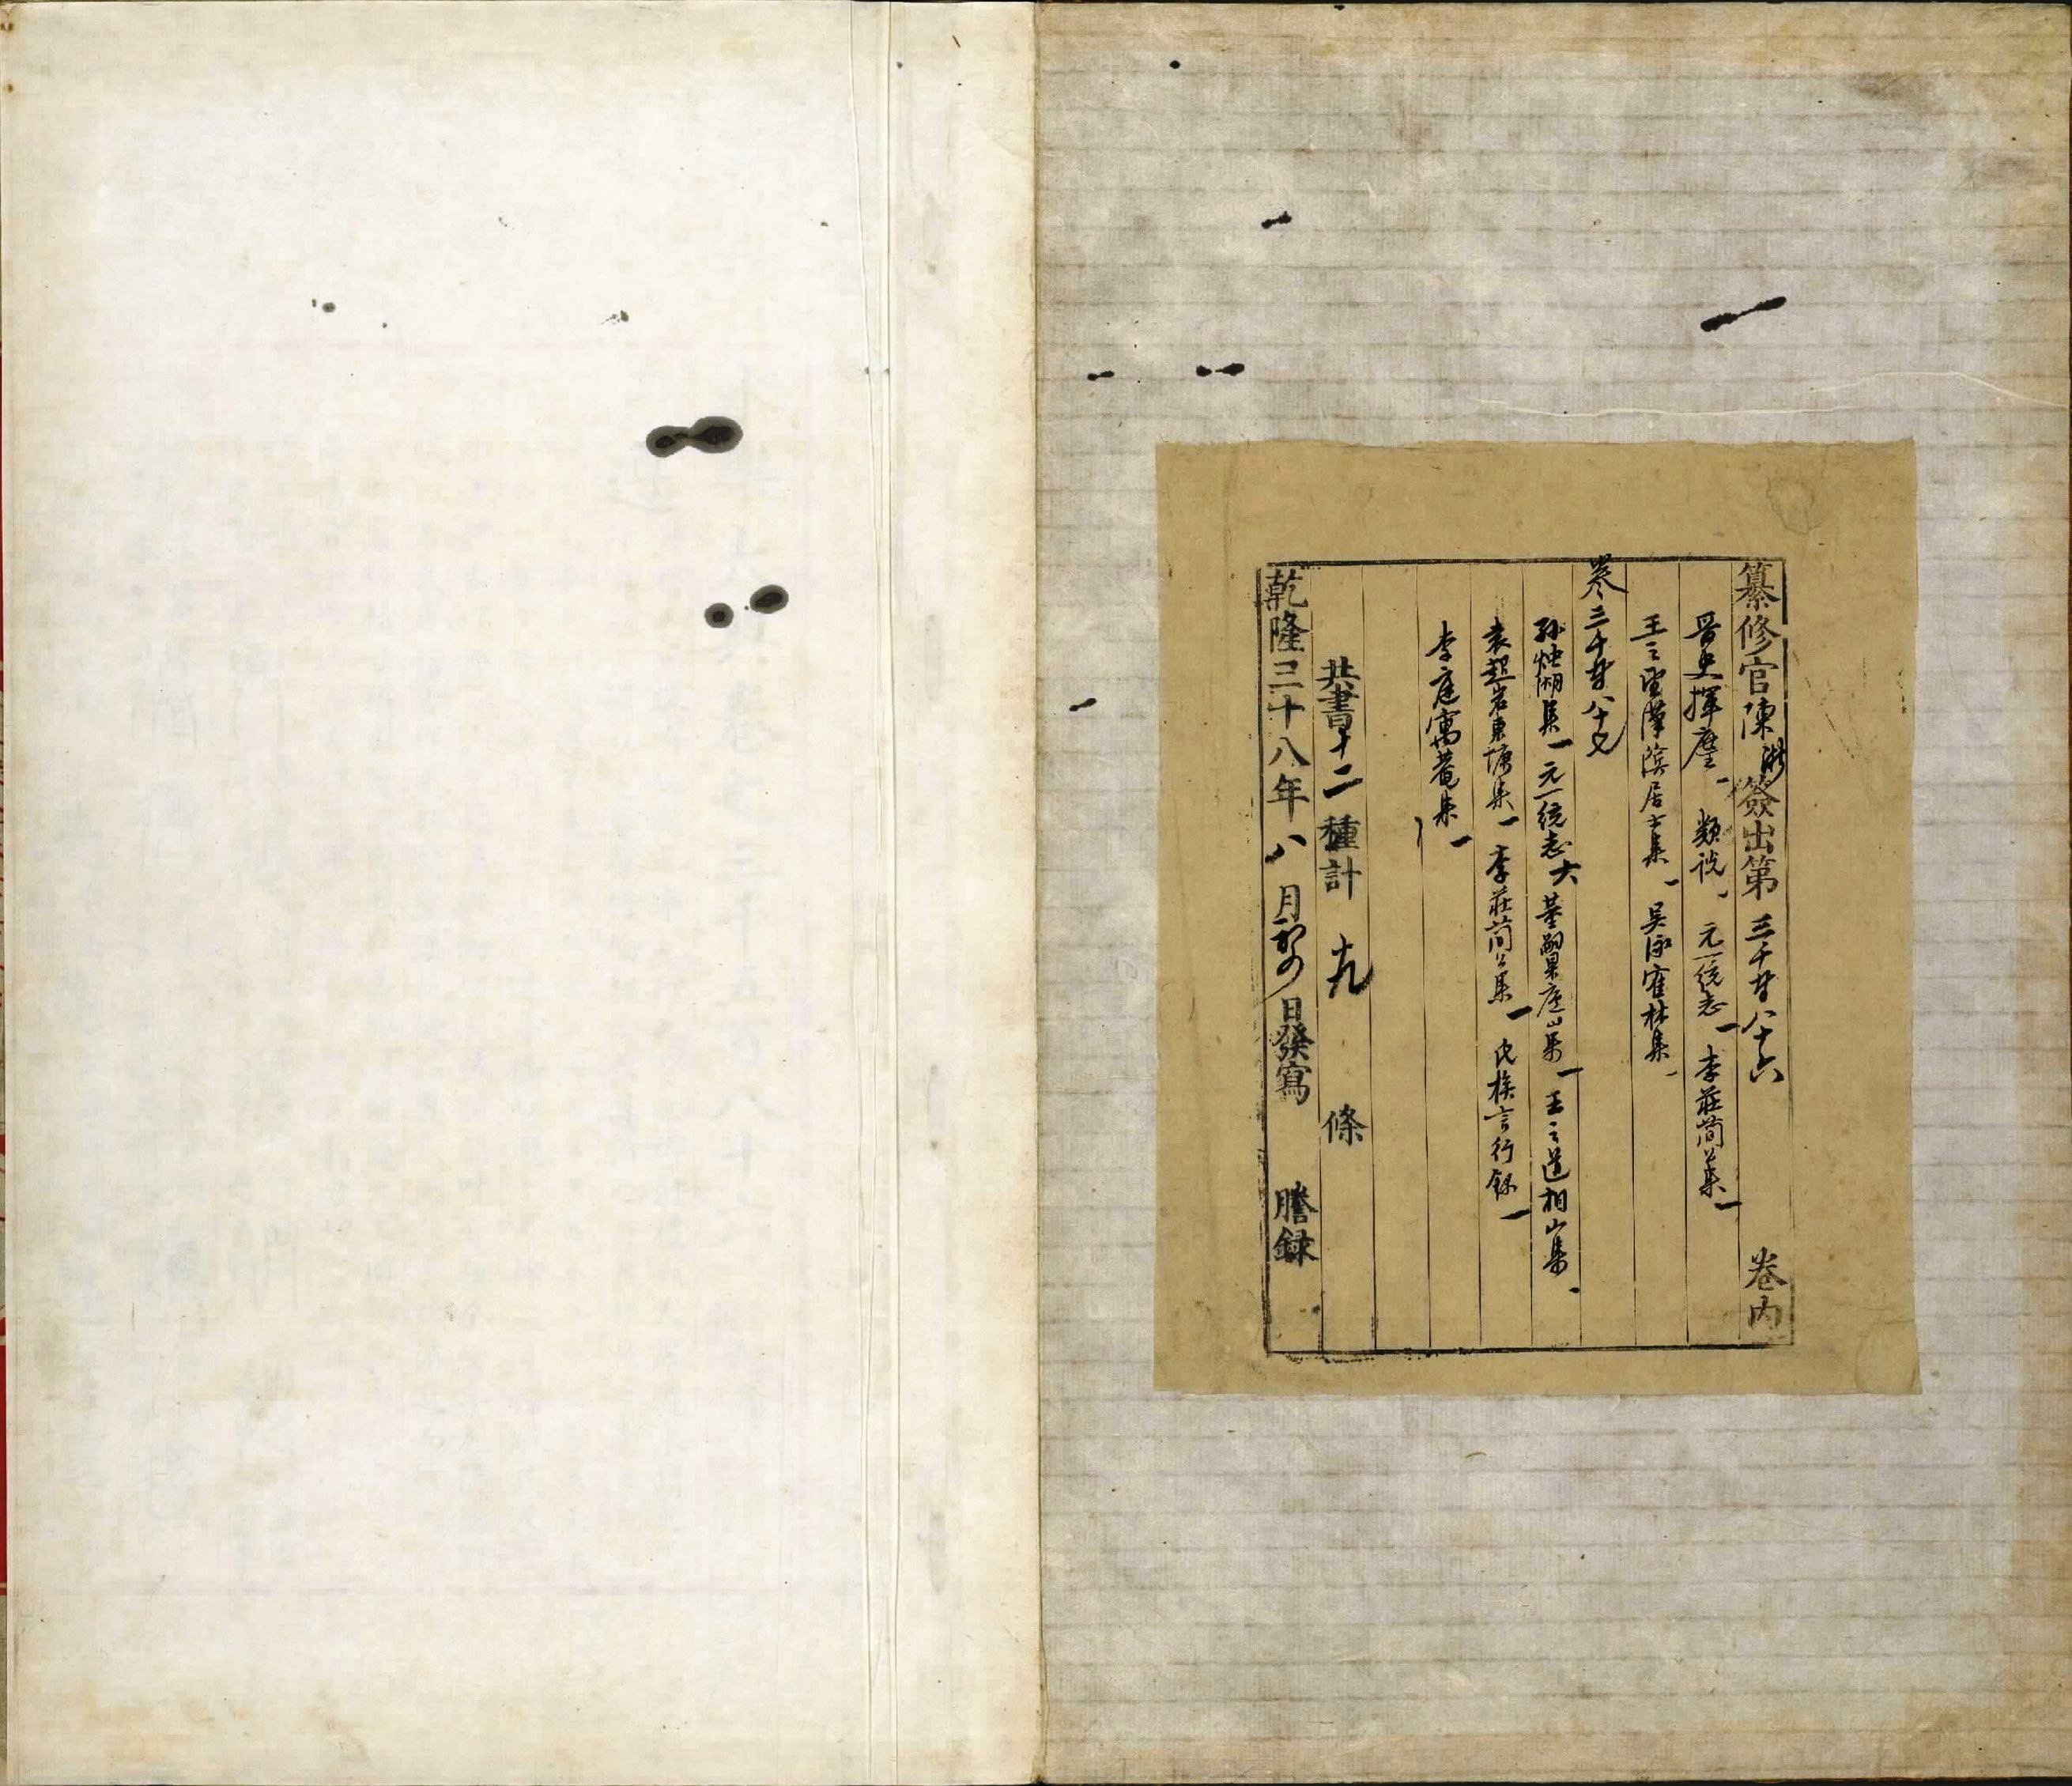 纂修官陳 簽出第三千五百八十六卷内
晉史揮麈 類說 元一統志一 李莊簡公集一
王之望漢濱居士集 吳泳寉林集
卷三千五百八十七
孫燭湖集一 元一統志六 董嗣杲廬山集一 王之道相山集
袁起岩東塘集一 李莊簡公集一 氏族言行錄一
李庭寓菴集一
共書十二種計 九 條
乾隆三十八年八月初 日發寫 謄録